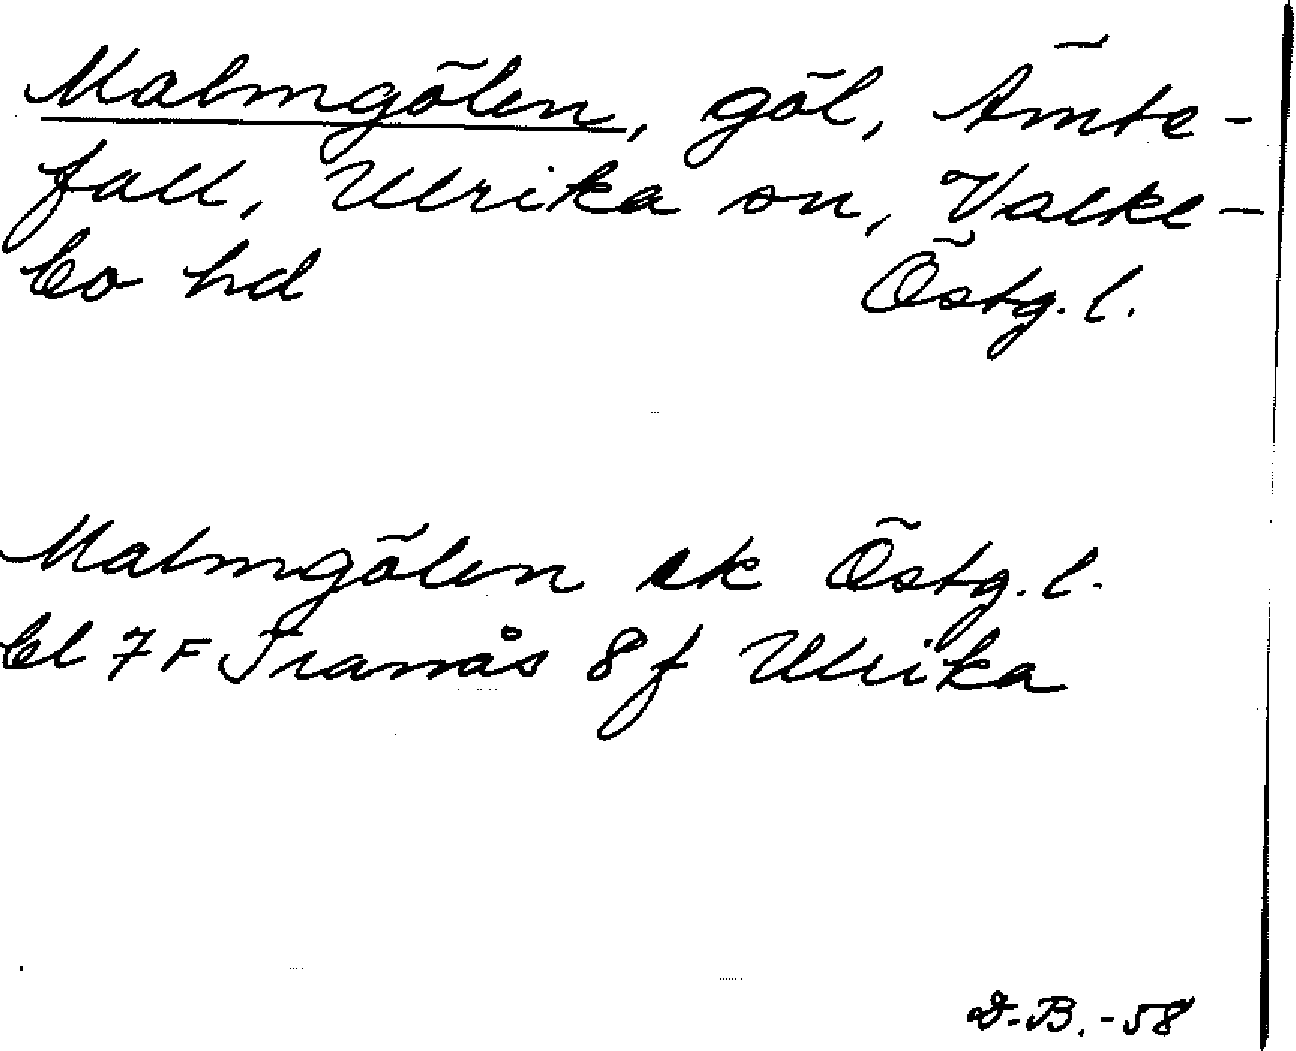 Malmgölen, göl, Ämte-
fall, Ulrika sn, Valke-
bo hd Östg. l.
Malmgölen ek Östg. l.
bl 7 F Tranås 8 f Ulrika
D.B. -58